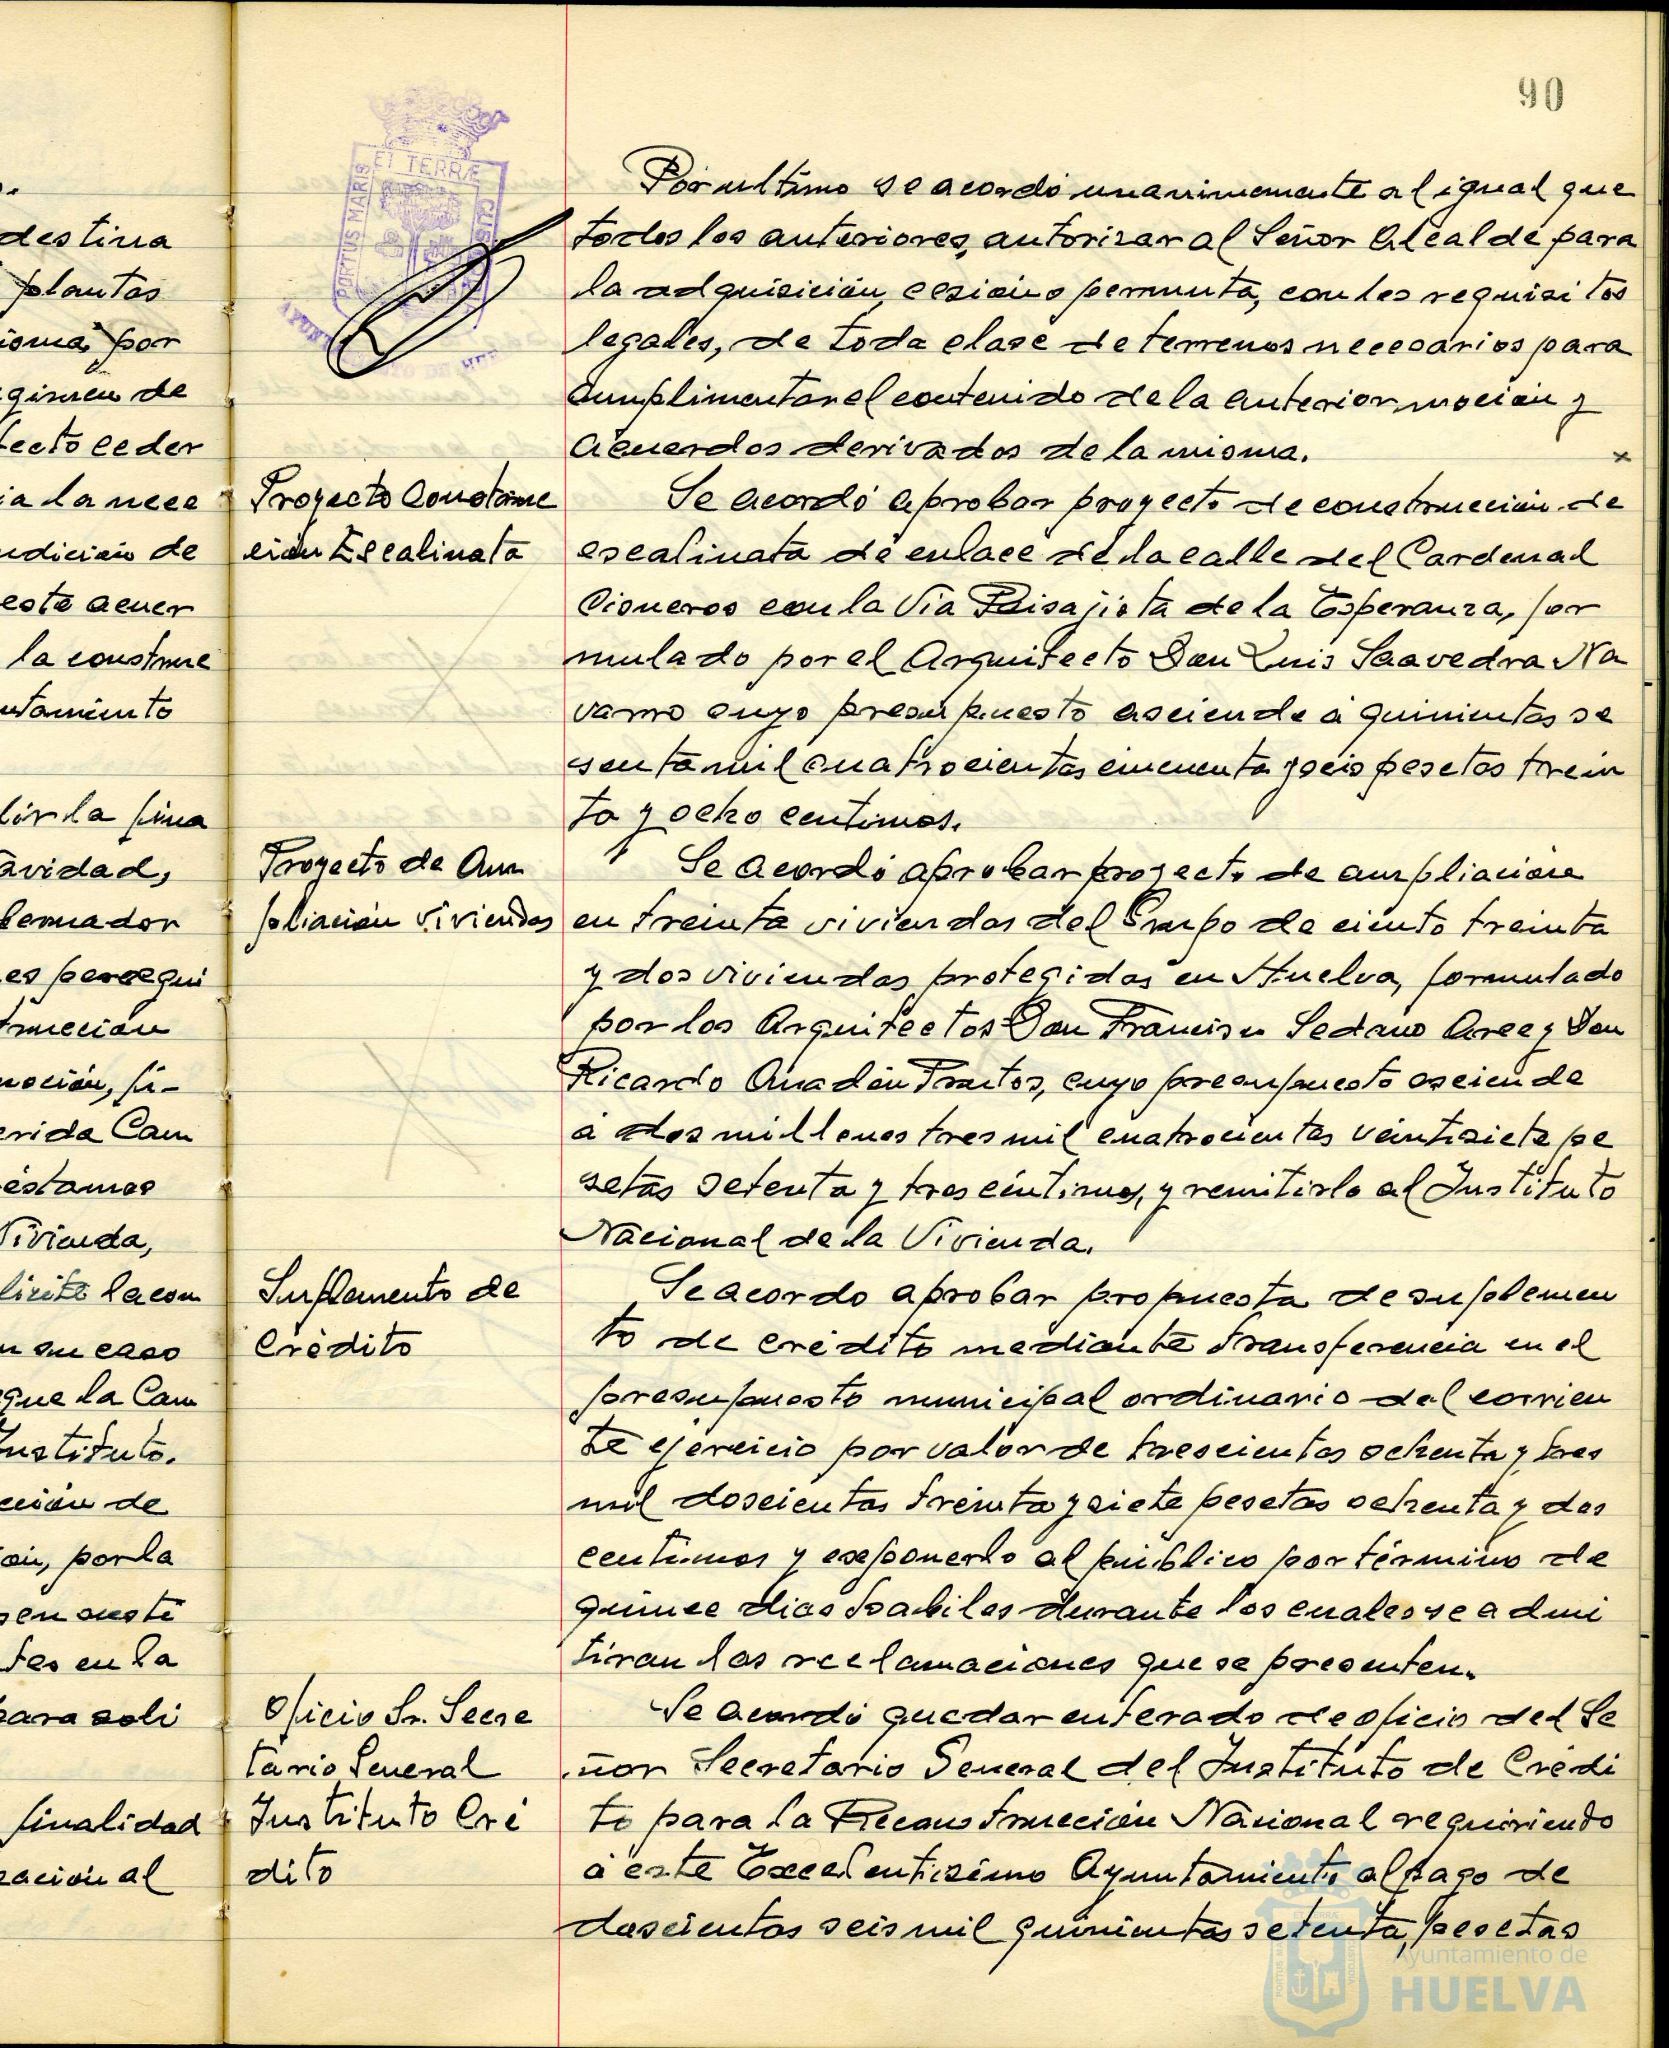 90
ET TERRÆ
PORTUS MARIS
Por ultimo se acordó unanimemente al igual que
todos los anteriores, autorizar al Señor Alcalde para
la adquisición, cesión o permuta, con los requisitos
legales, de toda clase de terrenos necesarios para
cumplimentar el contenido de la anterior moción y
acuerdos derivados de la misma.
Proyecto construc
ción Escalinata
Se acordó aprobar proyecto de construcción de
escalinata de enlace de la calle del Cardenal
Cisneros con la Vía Paisajista de la Esperanza, for
mulado por el Arquitecto Don Luis Saavedra Na
varro cuyo presupuesto asciende á quinientas se
senta mil cuatrocientas cincuenta y seis pesetas trein
ta y ocho centimos.
Proyecto de Am
pliación viviendas
Se acordó aprobar proyecto de ampliación
en treinta viviendas del Grupo de ciento treinta
y dos viviendas protegidas en Huelva, formulado
por los Arquitectos Don Francisco Sedano Arce y Don
Ricardo Anadón Frutos, cuyo presupuesto asciende
á dos millones tres mil cuatrocientas veintisiete pe
setas setenta y tres céntimos, y remitirlo al Instituto
Nacional de la Vivienda.
Suplemento de
Crédito
Se acordo aprobar propuesta de suplemen
to de crédito mediante transferencia en el
presupuesto municipal ordinario del corrien
te ejercicio por valor de trescientas ochenta y tres
mil doscientas treinta y siete pesetas ochenta y dos
centimos y exponerlo al público por término de
quince dias habiles durante los cuales se admi
tiran las reclamaciones que se presenten.
Oficio Sr. Secre
tario General
Instituto Cré
dito
Se acordó quedar enterado de oficio del Se
ñor Secretario General del Instituto de Crédi
to para la Reconstrucción Nacional requiriendo
á este Excelentísimo Ayuntamiento al pago de
doscientas seis mil quinientas setenta, pesetas
destina
plantas
por
gimen de
fecto ceder
ia la nece
ndición de
este acuer
la construc
ntamiento
lir la fina
avidad,
bernador
es persegui
trucción
moción, fi-
erida Cam
éstamos
Vivienda,
licite la con
n su caso
que la Cam
Instituto.
cción de
ón, por la
sen oeste
tes en la
para soli
finalidad
zación al
Ayuntamiento de
HUELVA